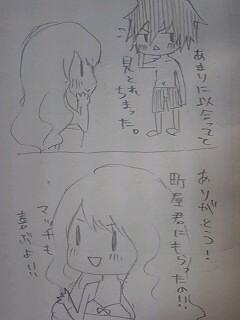 あまりに以合ってて
見とれ
ちまった。
ありがとう!
町屋君にもらったの!!
マッチも
喜ぶよ!!